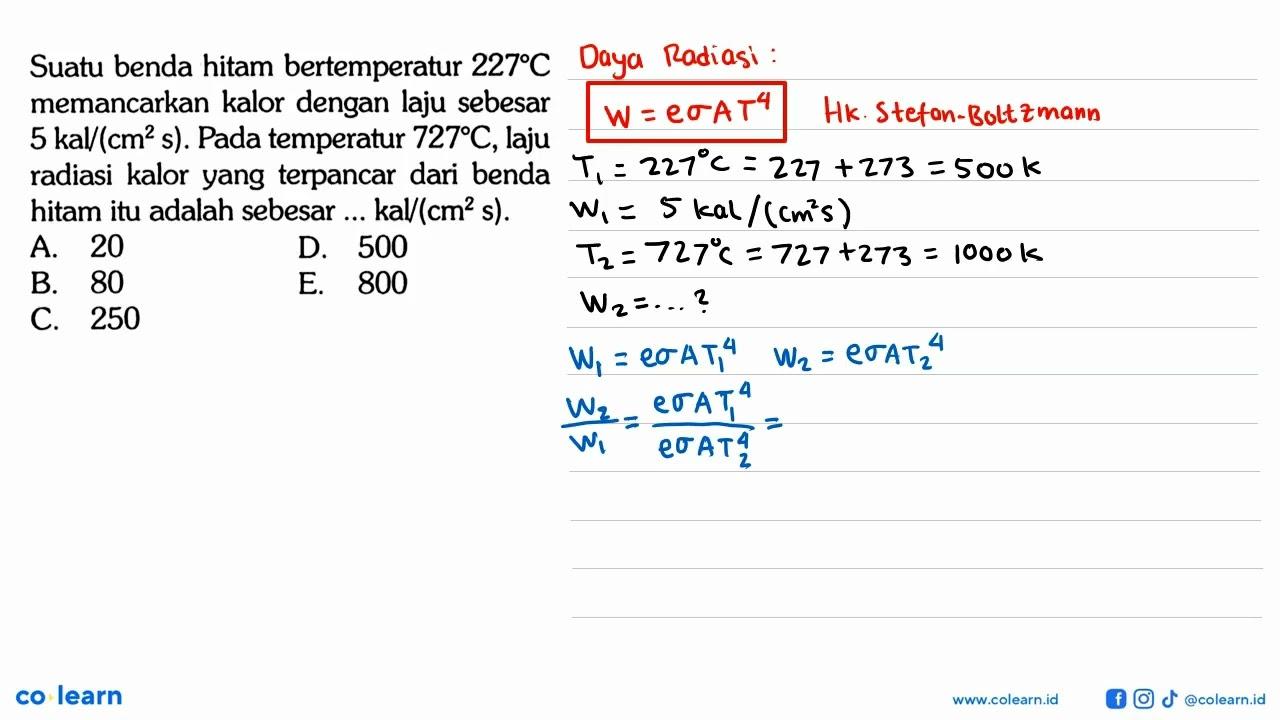 Suatu benda hitam bertemperatur 227°C
memancarkan kalor dengan laju sebesar
5 kal/(cm² s). Pada temperatur 727°C, laju
radiasi kalor yang terpancar dari benda
hitam itu adalah sebesar ... kal/(cm² s).
A. 20 D. 500
B. 80 E. 800
C. 250
Daya Radiasi :
W = eσAT⁴ Hk. Stefan-Boltzmann
T₁ = 227°C = 227 + 273 = 500 K
W₁ = 5 kal/(cm²s)
T₂ = 727°C = 727 + 273 = 1000 K
W₂ = ... ?
W₁ = eσAT₁⁴ W₂ = eσAT₂⁴
W₂/W₁ = eσAT₁⁴/eσAT₂⁴ =
co learn
www.colearn.id @colearn.id